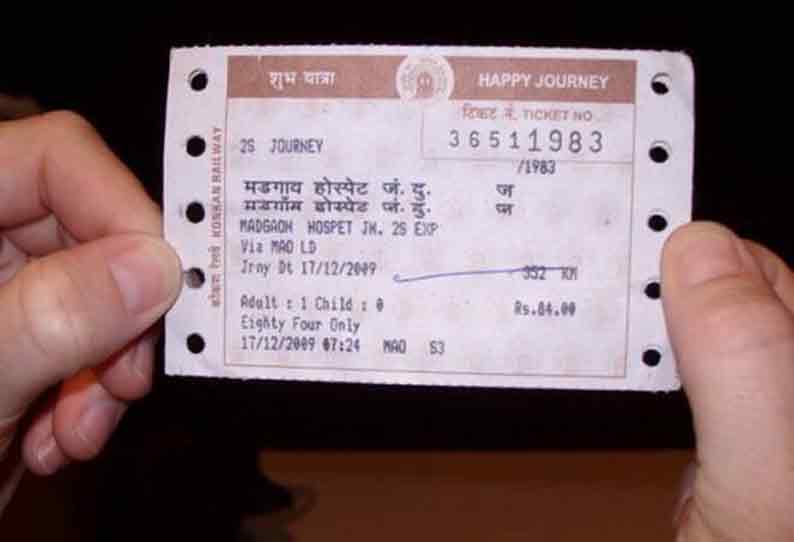 शुभ यात्रा HAPPY JOURNEY
टिकट नं. TICKET NO
36511983
/1983
2S JOURNEY
मडगाव होस्पेट जं. दु. ज
मडगाँम होस्पेट जं. दु. ज
MADGAON HOSPET JN. 2S EXP
Via MAO LD
Jrny Dt 17/12/2009 352 KM
Adult : 1 Child : 0 Rs.84.00
Eighty Four Only
17/12/2009 07:24 MAO S3
कोंकण रेलवे KONKAN RAILWAY